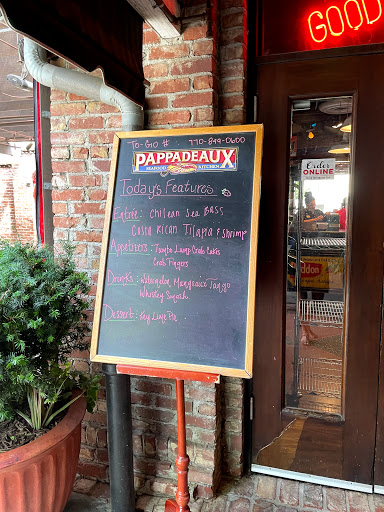 GOOD
To-Go # 770-849-0600
PAPPADEAUX
SEAFOOD KITCHEN
Today's Features
Entrée: Chilean Sea Bass
Costa Rican Tilapia & Shrimp
Appetizers: Jumbo Lump Crab Cakes
Crab Fingers
Drinks: Mangeaux Tango
Whiskey Smash
Dessert: Key Lime Pie
Order
ONLINE